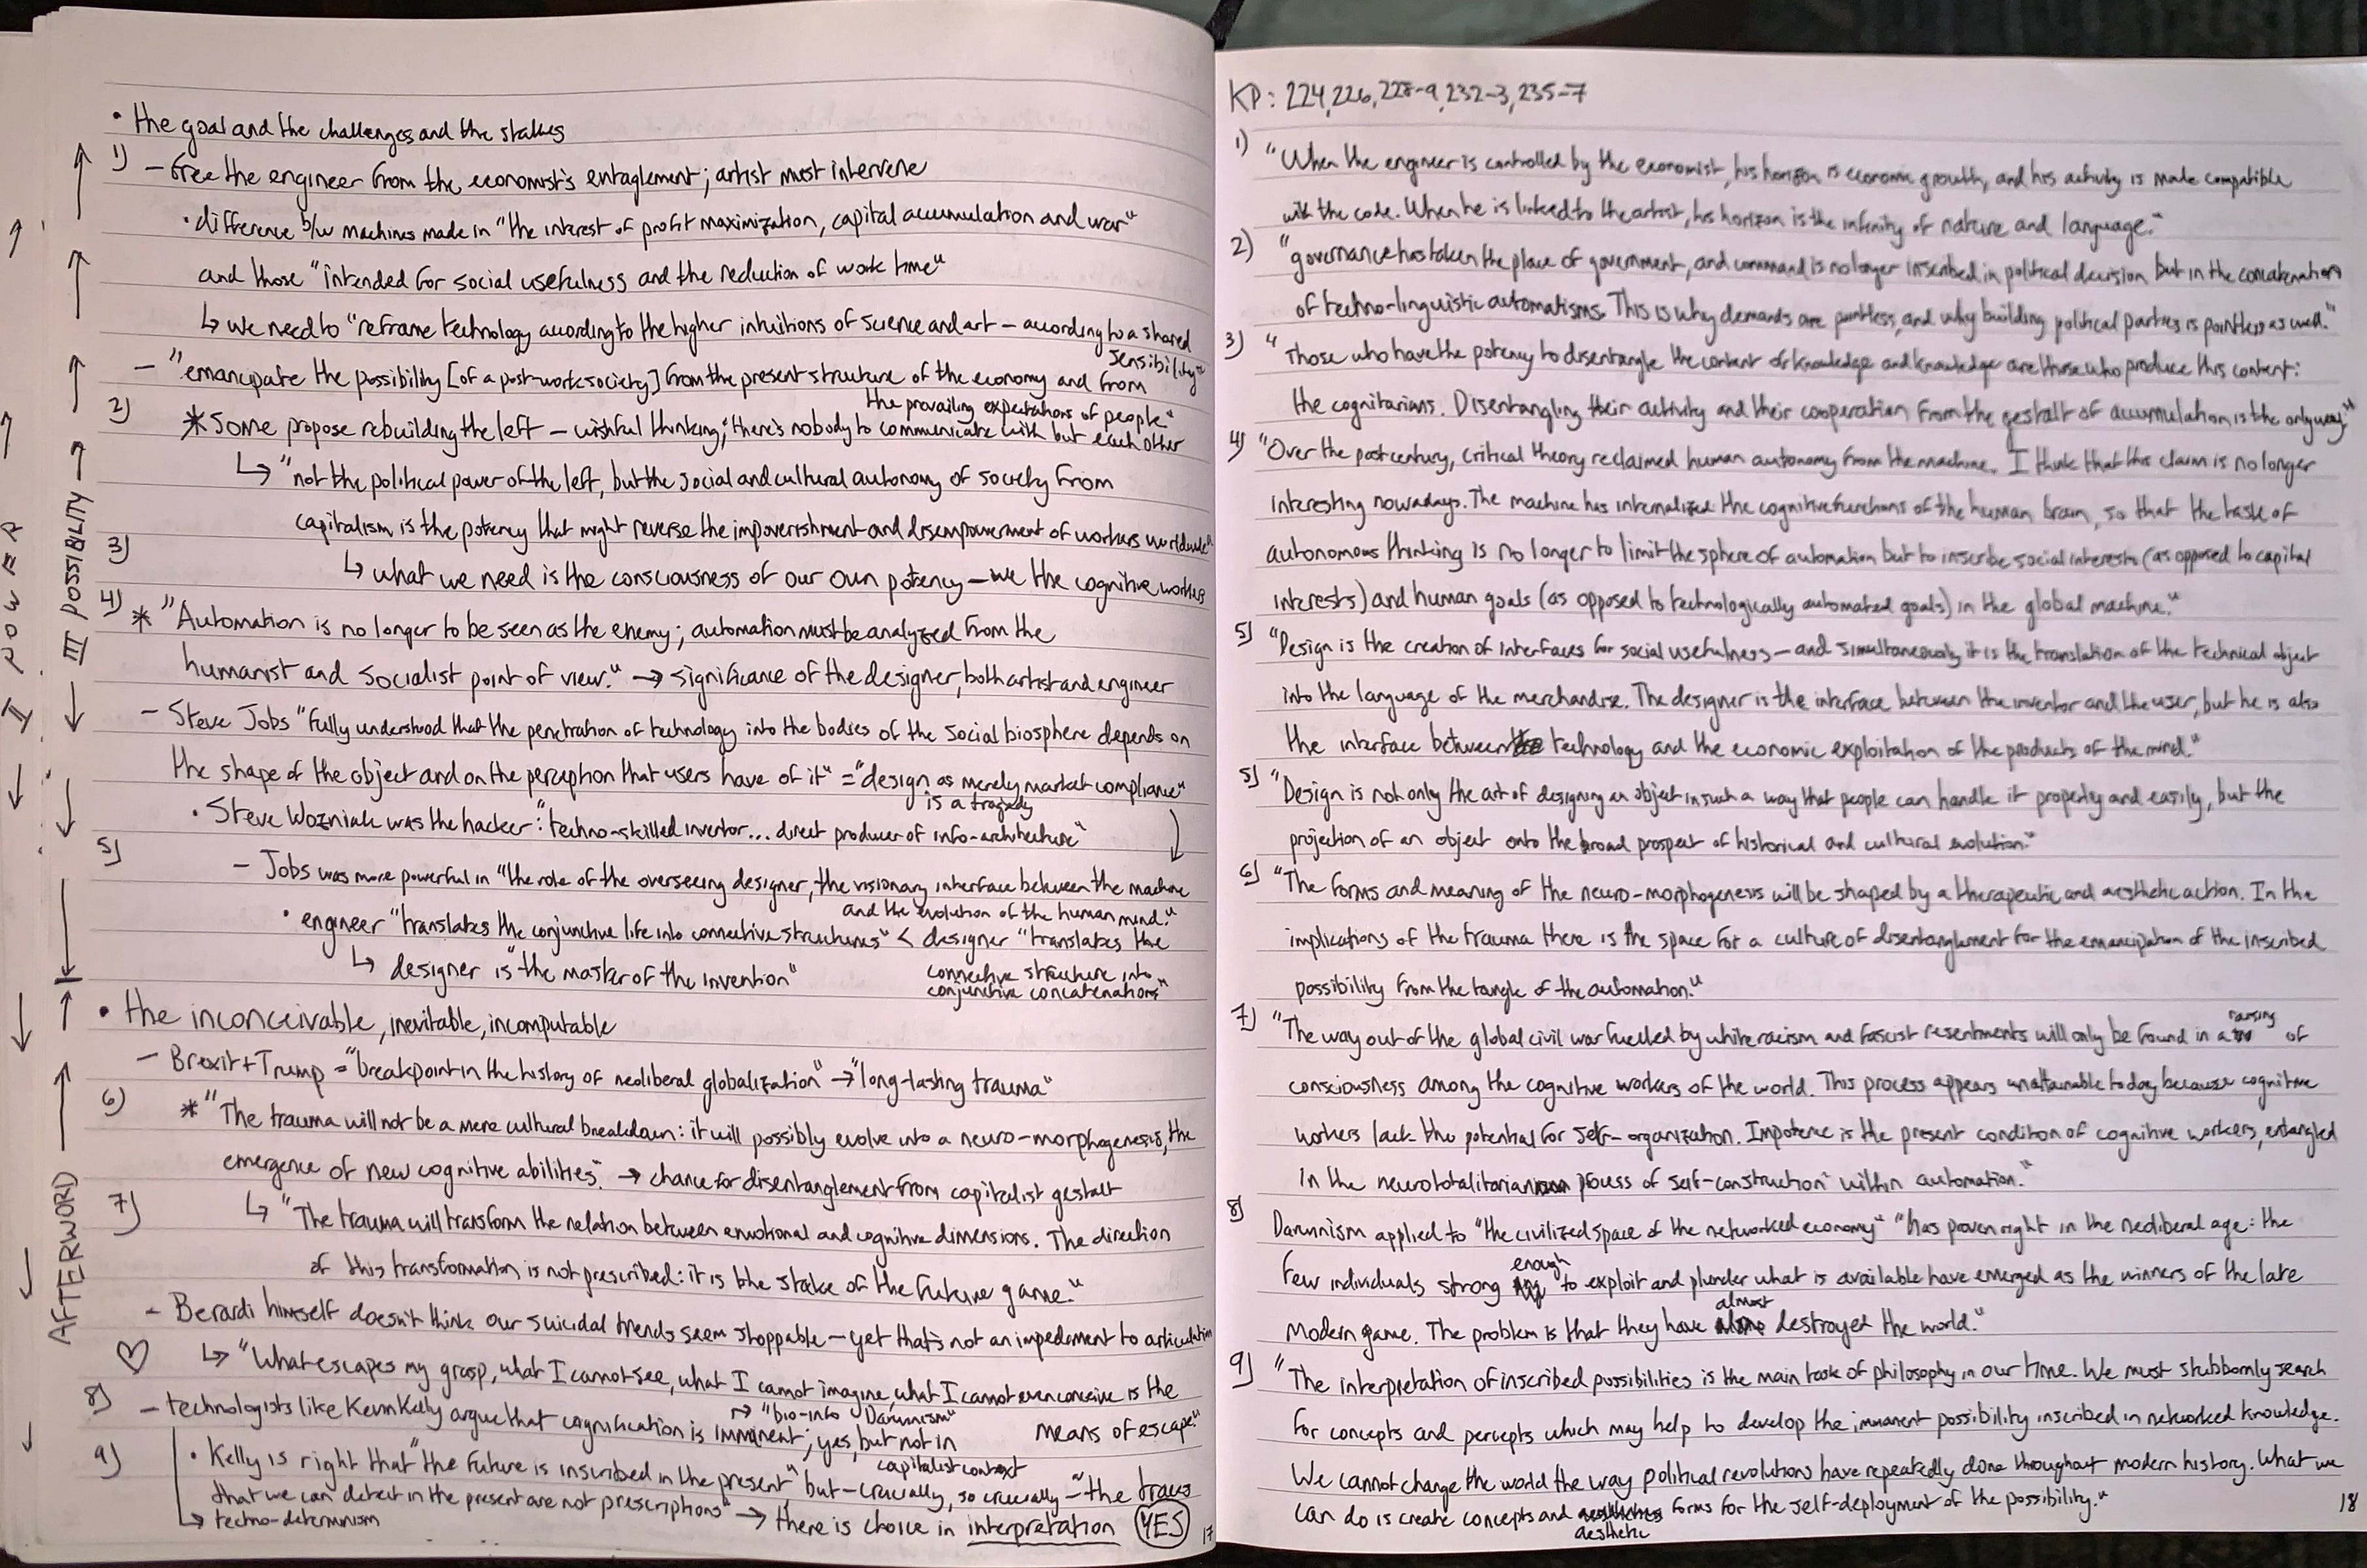 • the goal and the challenges and the stakes
1) – free the engineer from the economist's entaglement; artist must intervene
• difference b/w machines made in "the interest of profit maximization, capital accumulation and war"
and those "intended for social usefulness and the reduction of work time"
↳ we need to "reframe technology according to the higher intuitions of science and art – according to a shared sensibility"
– "emancipate the possibility [of a post-work society] from the present structure of the economy and from the prevailing expectations of people"
2) * Some propose rebuilding the left – wishful thinking; "there's nobody to communicate with but each other
↳ "not the political power of the left, but the social and cultural autonomy of society from
capitalism is the potency that might reverse the impoverishment and disempowerment of workers worldwide"
3) ↳ what we need is the consciousness of our own potency – we the cognitive workers
4) * "Automation is no longer to be seen as the enemy; automation must be analyzed from the
humanist and socialist point of view." → significance of the designer, both artist and engineer
– Steve Jobs "fully understood that the penetration of technology into the bodies of the social biosphere depends on
the shape of the object and on the perception that users have of it" = "design as merely market compliance" is a tragedy
• Steve Wozniak was the hacker: "techno-skilled inventor... direct producer of info-architecture"
5) – Jobs was more powerful in "the role of the overseeing designer, the visionary interface between the machine and the evolution of the human mind."
• engineer "translates the conjunctive life into connective structures" < designer "translates the connective structure into conjunctive concatenations"
↳ designer is "the master of the invention"
• the inconceivable, inevitable, incomputable
– Brexit + Trump = "breakpoint in the history of neoliberal globalization" → "long-lasting trauma"
6) * "The trauma will not be a mere cultural breakdown: it will possibly evolve into a neuro-morphogenesis, the
emergence of new cognitive abilities." → chance for disentanglement from capitalist gestalt
7) ↳ "The trauma will transform the relation between emotional and cognitive dimensions. The direction
of this transformation is not prescribed: it is the stake of the future game."
– Berardi himself doesn't think our suicidal trends seem stoppable – yet that's not an impediment to articulation
♡ ↳ "What escapes my grasp, what I cannot see, what I cannot imagine, what I cannot even conceive is the means of escape."
8) – technologists like Kevin Kelly argue that cognification is imminent; yes, but not in capitalist context
↱ "bio-info Darwinism"
9) • Kelly is right that "the future is inscribed in the present" but – crucially, so crucially – "the traces
that we can detect in the present are not prescriptions" → there is choice in interpretation YES
↳ techno-determinism
17
II POWER
III POSSIBILITY
AFTERWORD
KP: 224, 226, 228-9, 232-3, 235-7
1) "When the engineer is controlled by the economist, his horizon is economic growth, and his activity is made compatible
with the code. When he is linked to the artist, his horizon is the infinity of nature and language."
2) "governance has taken the place of government, and command is no longer inscribed in political decision but in the concatenation
of techno-linguistic automatisms. This is why demands are pointless, and why building political parties is pointless as well."
3) "Those who have the potency to disentangle the content of knowledge and knowledge are those who produce this content:
the cognitarians. Disentangling their activity and their cooperation from the gestalt of accumulation is the only way."
4) "Over the past century, critical theory reclaimed human autonomy from the machine. I think that this claim is no longer
interesting nowadays. The machine has internalized the cognitive functions of the human brain, so that the task of
autonomous thinking is no longer to limit the sphere of automation but to inscribe social interests (as opposed to capital
interests) and human goals (as opposed to technologically automated goals) in the global machine."
5) "Design is the creation of interfaces for social usefulness – and simultaneously it is the translation of the technical object
into the language of the merchandise. The designer is the interface between the inventor and the user, but he is also
the interface between technology and the economic exploitation of the products of the mind."
5) "Design is not only the art of designing an object in such a way that people can handle it properly and easily, but the
projection of an object onto the broad prospect of historical and cultural evolution."
6) "The forms and meaning of the neuro-morphogenesis will be shaped by a therapeutic and aesthetic action. In the
implications of the trauma there is the space for a culture of disentanglement for the emancipation of the inscribed
possibility from the tangle of the automation."
7) "The way out of the global civil war fuelled by white racism and fascist resentments will only be found in a raising of
consciousness among the cognitive workers of the world. This process appears unattainable today because cognitive
workers lack the potential for self-organization. Impotence is the present condition of cognitive workers, entangled
in the neurototalitarian process of self-construction within automation."
8) Darwinism applied to "the civilized space of the networked economy" "has proven right in the neoliberal age: the
few individuals strong enough to exploit and plunder what is available have emerged as the winners of the late
Modern game. The problem is that they have almost destroyed the world."
9) "The interpretation of inscribed possibilities is the main task of philosophy in our time. We must stubbornly search
for concepts and percepts which may help to develop the immanent possibility inscribed in networked knowledge.
We cannot change the world the way political revolutions have repeatedly done throughout modern history. What we
can do is create concepts and aesthetic forms for the self-deployment of the possibility."
18